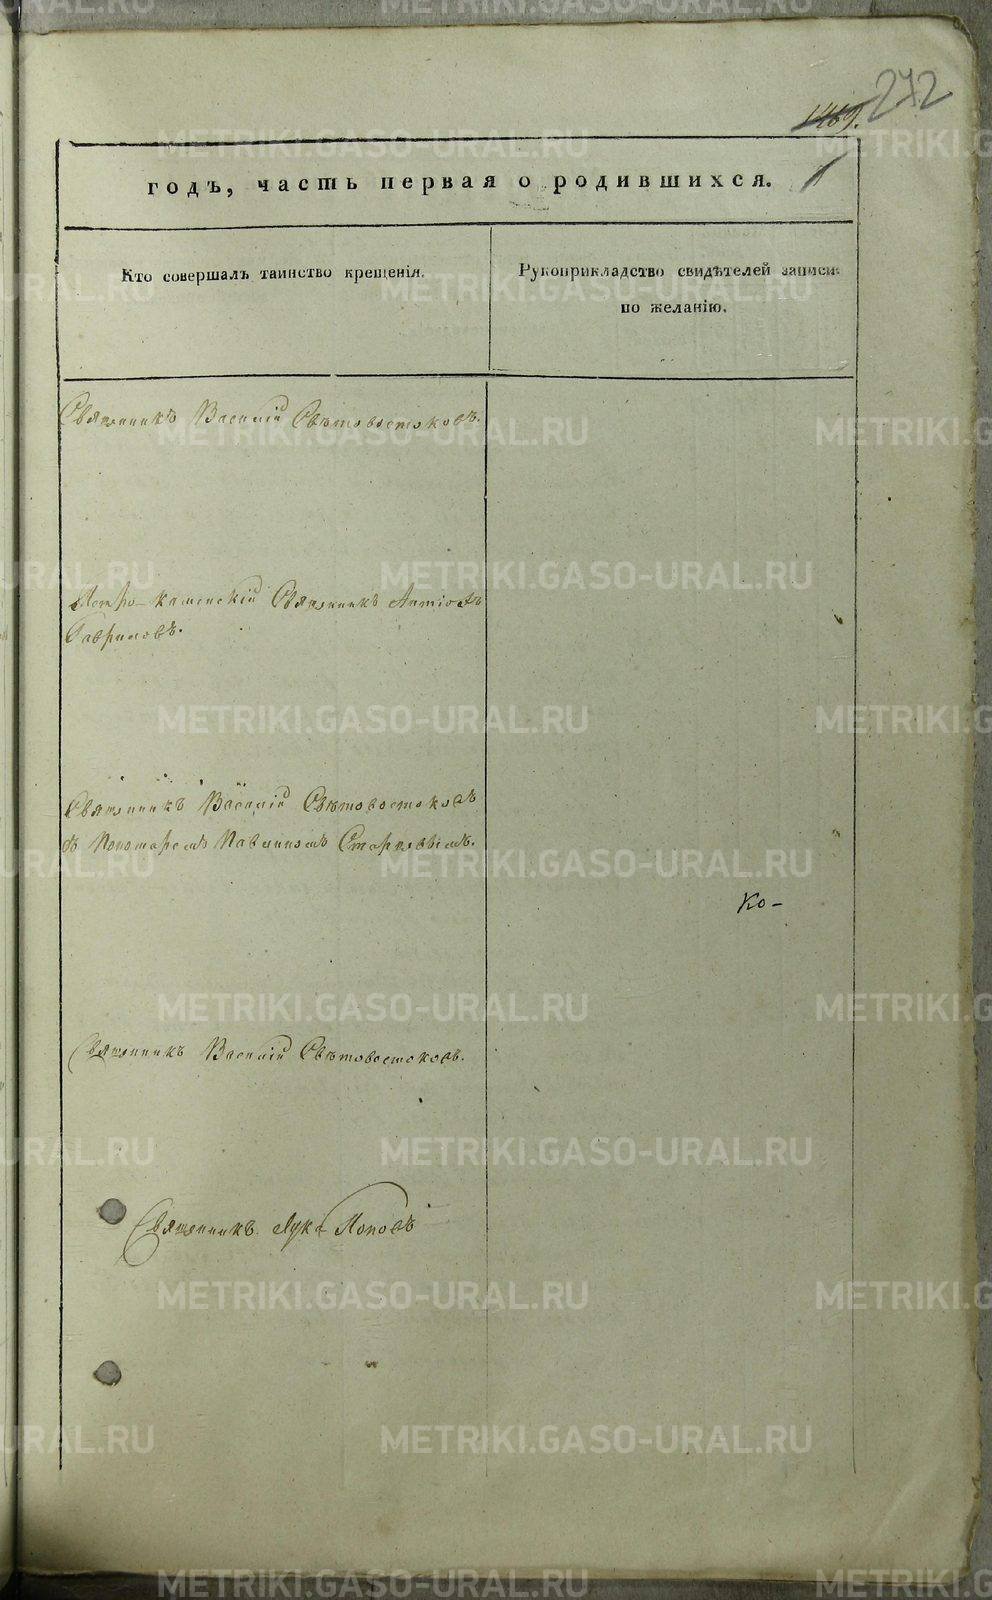 272
1469.
годъ, часть первая о родившихся.
Кто совершалъ таинство крещенія.
Рукоприкладство свидѣтелей записи
по желанію.
Священникъ Василій Свѣтовостоковъ.
Петро-каменскій Священникъ Антіохъ
Гавриловъ.
Священникъ Василій Свѣтовостоковъ
съ Пономаремъ Павлиномъ
Ко-
Священникъ Василій Свѣтовостоковъ.
Священникъ Лука Поповъ
METRIKI.GASO-URAL.RU